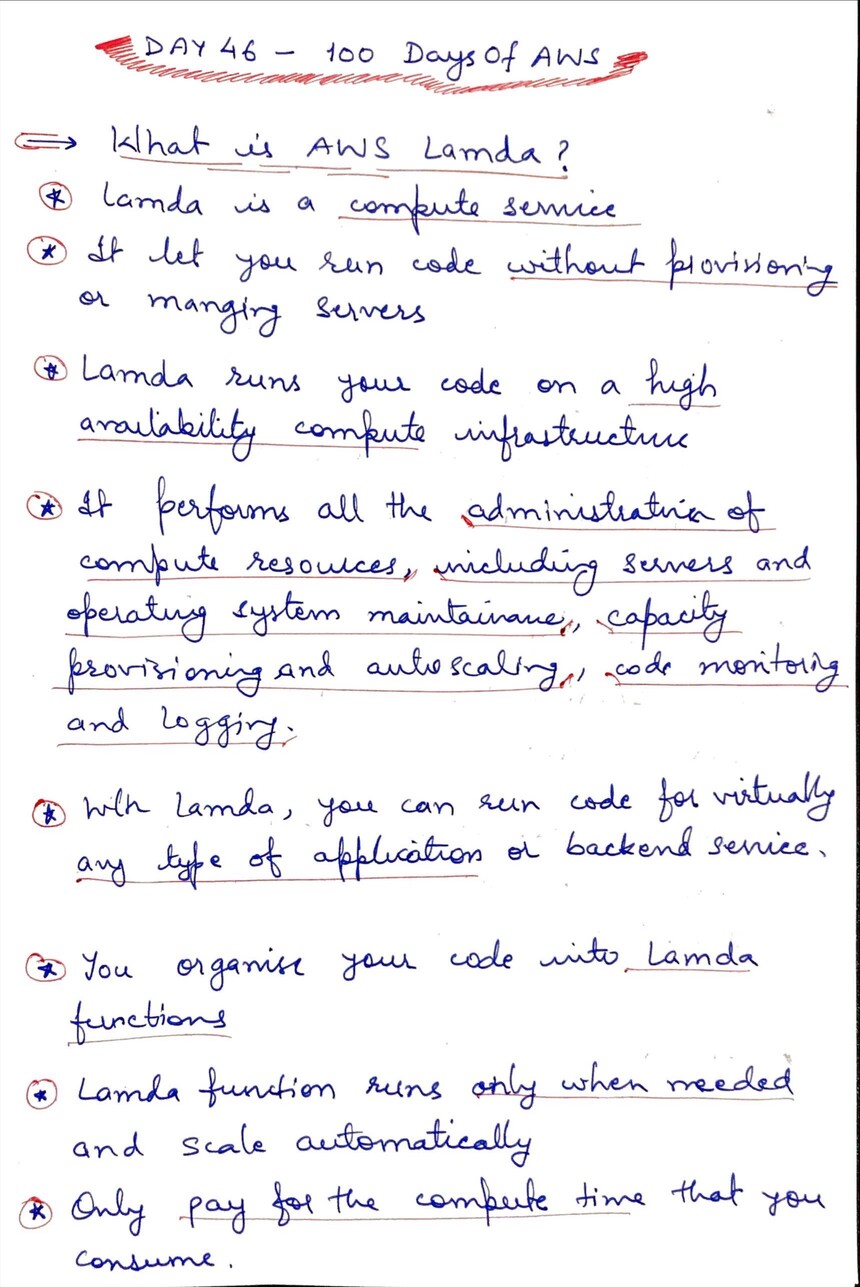 DAY 46 - 100 Days Of AWS
What is AWS Lamda?
Lamda is a compute service
It let you run code without provisioning
or manging servers
Lamda runs your code on a high
availability compute infrastructure
It performs all the administration of
compute resources, including servers and
operating system maintainane, capacity
provisioning and autoscaling, code monitoring
and logging.
With Lamda, you can run code for virtually
any type of application or backend service.
You organise your code into Lamda
functions
Lamda function runs only when needed
and scale automatically
Only pay for the compute time that you
consume.